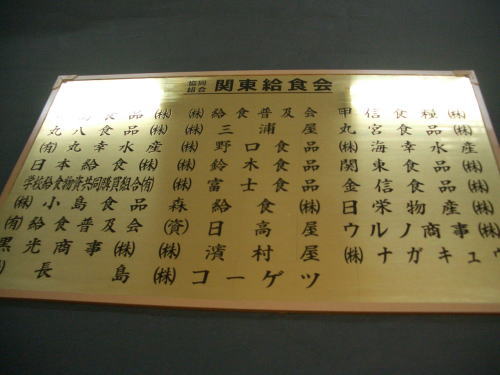 協同組合 関東給食会
食品(株)
丸八食品(株)
(有)丸幸水産
日本給食(株)
学校給食物資共同購買組合(有)
(株)小島食品
(有)給食普及会
黒光商事(株)
長島(株)
(株)給食普及会
(株)三浦屋
(株)野口食品
(株)鈴木食品
(株)富士食品
森給食(株)
(資)日高屋
(株)濱村屋
(株)コーゲツ
甲信食糧(株)
丸宮食品(株)
(株)海幸水産
関東食品(株)
金信食品(株)
日栄物産(株)
ウルノ商事(株)
(株)ナガキュウ